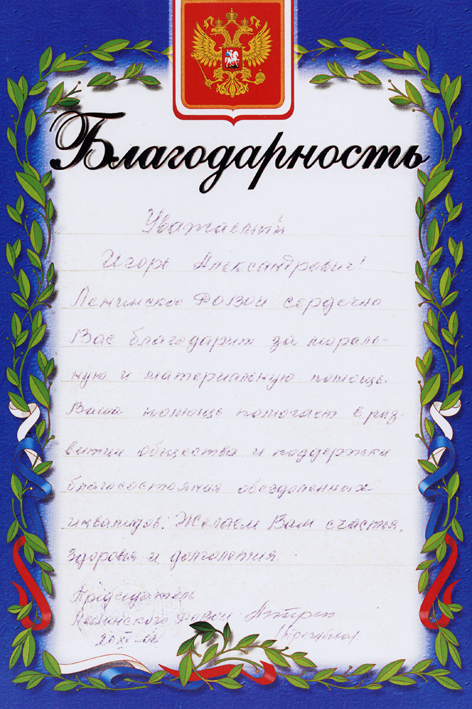 Благодарность
Уважаемый
Игорь Александрович!
Ленинское РОВОИ сердечно
Вас благодарит за мораль-
ную и материальную помощь.
Ваша помощь помогает в раз-
витии общества и поддержке
благосостояния обездоленных
инвалидов. Желаем Вам счастья,
здоровья и долголетия.
Председатель
Ленинского